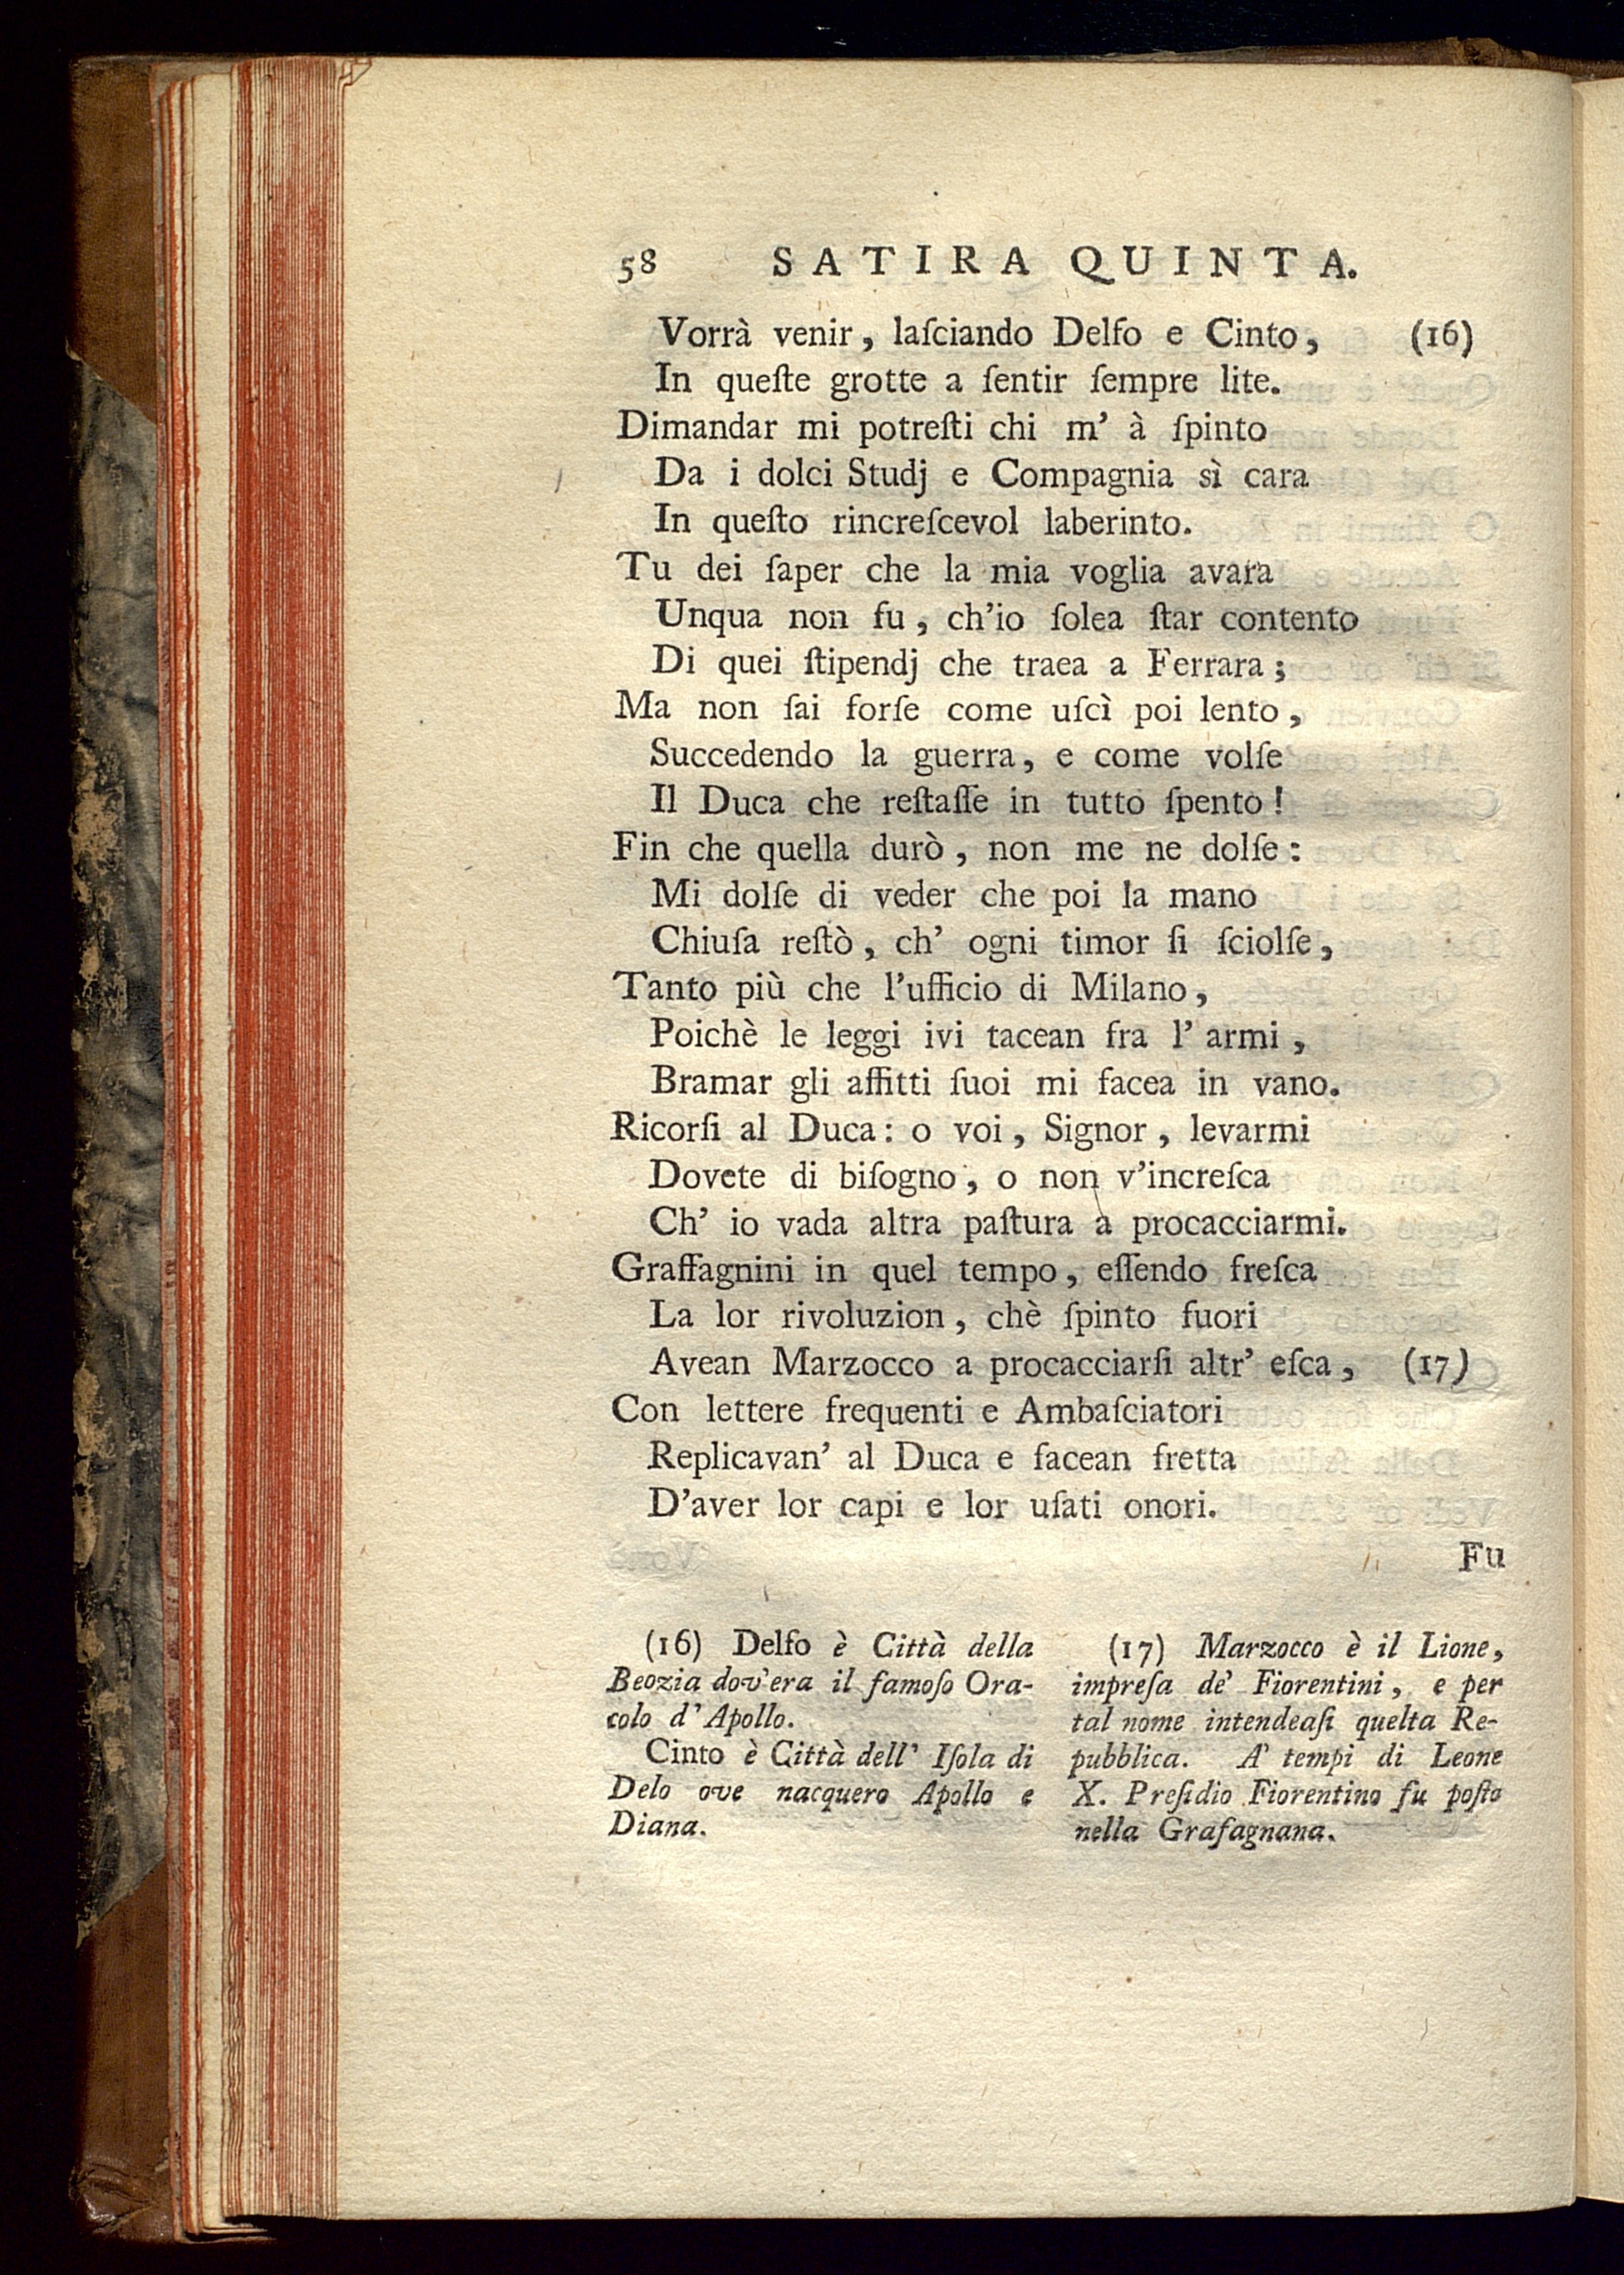 58 SATIRA QUINTA.
Vorrà venir, laſciando Delfo e Cinto, (16)
In queſte grotte a ſentir ſempre lite.
Dimandar mi potreſti chi m' à ſpinto
Da i dolci Studj e Compagnia sì cara
In queſto rincreſcevol laberinto.
Tu dei ſaper che la mia voglia avara
Unqua non fu, ch'io ſolea ſtar contento
Di quei ſtipendj che traea a Ferrara;
Ma non ſai forſe come uſcì poi lento,
Succedendo la guerra, e come volſe
Il Duca che reſtaſſe in tutto ſpento!
Fin che quella durò, non me ne dolſe:
Mi dolſe di veder che poi la mano
Chiuſa reſtò, ch' ogni timor ſi ſciolſe,
Tanto più che l'ufficio di Milano,
Poichè le leggi ivi tacean fra l' armi,
Bramar gli affitti ſuoi mi facea in vano.
Ricorſi al Duca: o voi, Signor, levarmi
Dovete di biſogno, o non v'increſca
Ch' io vada altra paſtura a procacciarmi.
Graffagnini in quel tempo, eſſendo freſca
La lor rivoluzion, chè ſpinto fuori
Avean Marzocco a procacciarſi altr' eſca, (17)
Con lettere frequenti e Ambaſciatori
Replicavan' al Duca e facean fretta
D'aver lor capi e lor uſati onori.
Fu
(16) Delfo è Città della
Beozia dov'era il famoſo Ora-
colo d' Apollo.
Cinto è Città dell' Iſola di
Delo ove nacquero Apollo e
Diana.
(17) Marzocco è il Lione,
impreſa de' Fiorentini, e per
tal nome intendeaſi quelta Re-
pubblica. A' tempi di Leone
X. Preſidio Fiorentino fu poſto
nella Grafagnana.